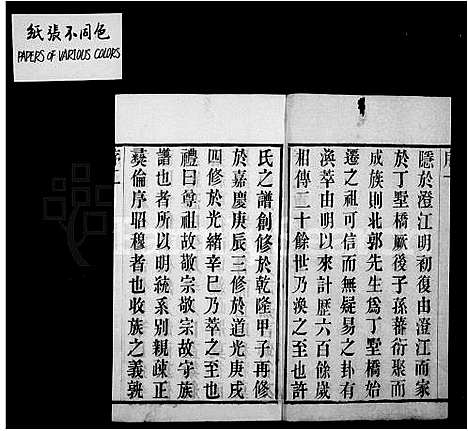 紙張不同色
PAPERS OF VARIOUS COLORS
序一
隱於澄江明初復由澄江而家
於丁墅橋厥後子孫蕃衍聚而
成族則北郭先生為丁墅橋始
遷之祖可信而無疑易之卦有
渙萃由明以來計歷六百餘歲
相傳二十餘世乃渙之至也許
氏之譜創修於乾隆甲子再修
於嘉慶庚辰三修於道光庚戌
四修於光緒辛巳乃萃之至也
禮曰尊祖故敬宗敬宗故守族
譜也者所以明統系別親疎正
彝倫序昭穆者也收族之義興
序二